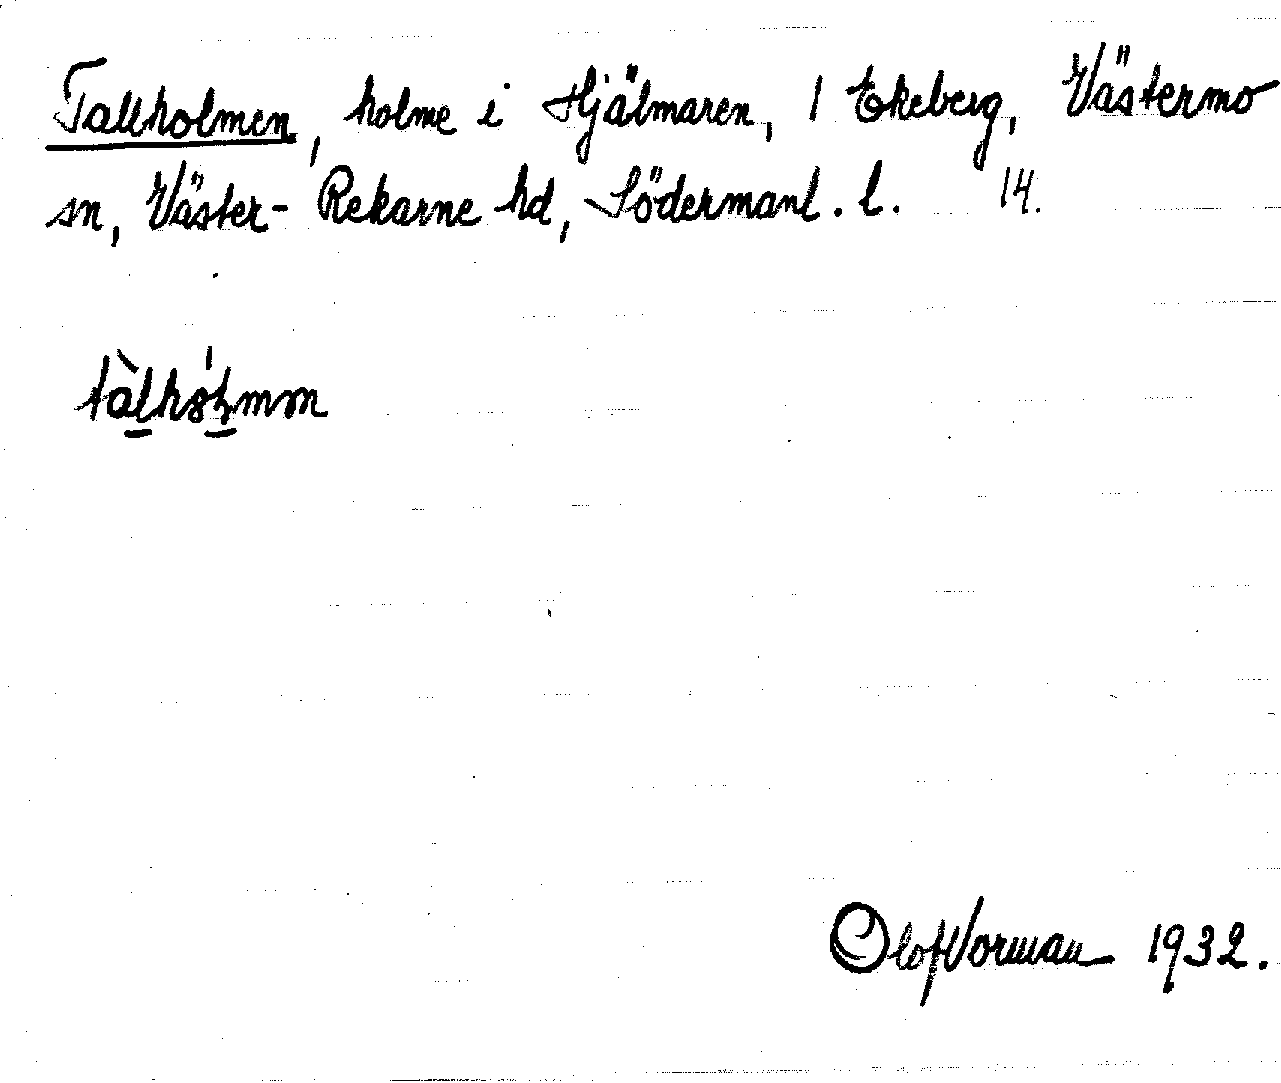 Tallholmen, holme i Hjälmaren, 1 Ekeberg, Västermo
sn, Väster-Rekarne hd, Södermanl. l. 14.
Olof Vorman 1932.